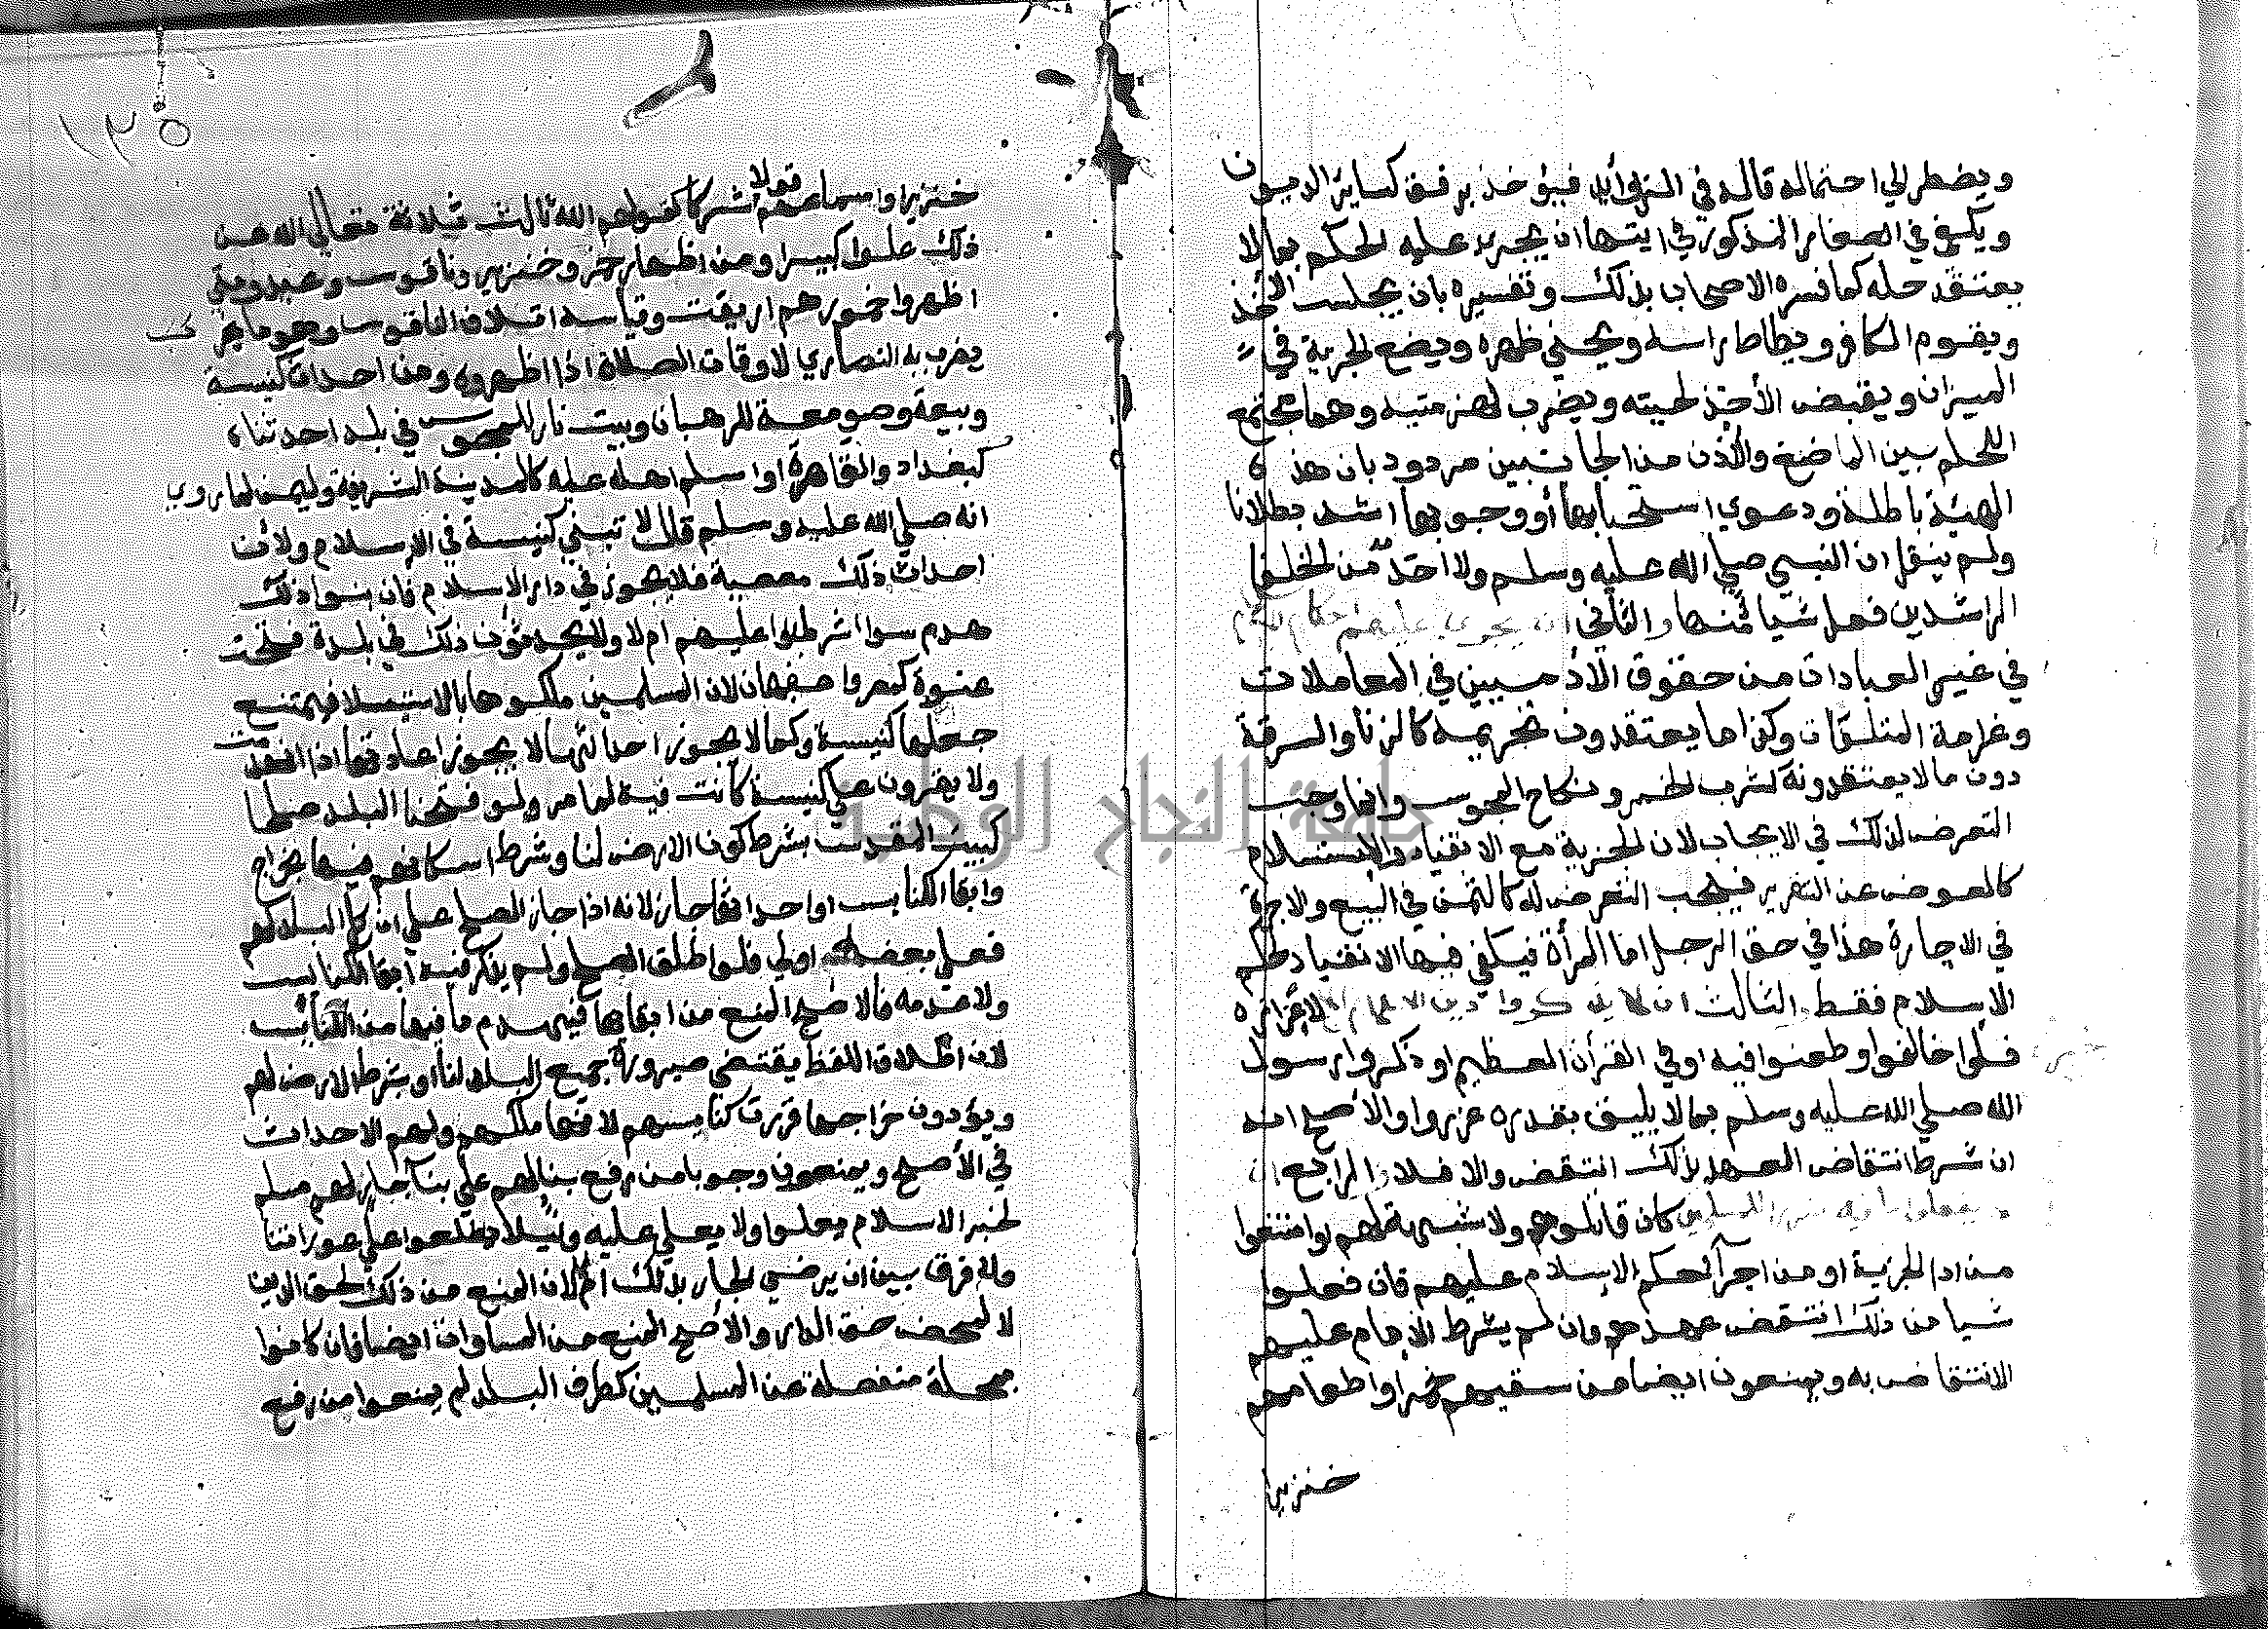 ويضطر الي احتماله قاله في الزوائد فيؤخذ برفق كساير الديون
ويكفي في الصغار المذكور في ايتها ان يجري عليه الحكم بما لا
يعتقد حله كما فسره الاصحاب بذلك وتفسيره بان يجلس الاخذ
ويقوم الكافر ويطاطا راسه ويحني ظهره ويضع الجزية في
الميزان ويقبض الأخذ لحيته ويضرب لهزمتيه وهما مجتمع
اللحم بين الماضغ والأذن من الجانبين مردود بان هذه
الهيئة باطلة ودعوي استحبابها أو وجوبها اشد بطلانا
ولم ينقل ان النبي صلي الله عليه وسلم ولا احد من الخلفا
الراشدين فعل شيا منها والثاني ان يجري عليهم احكام الاسلام
في غير العبادات من حقوق الادميين في المعاملات
وغرامة المتلفات وكذا ما يعتقدون تحريمه كالزنا والسرقة
دون ما لا يعتقدونه كشرب الخمر ونكاح المجوس وانما وجب
التعرض لذلك في الايجاب لان الجزية مع الانقياد والاستسلام
كالعوض عن التقرير فيجب التعرض له كالثمن في البيع والاجرة
في الاجارة هذا في حق الرجل اما المرأة فيكفي فيها الانقياد لحكم
الاسلام فقط الثالث ان لا يذكروا دين الاسلام الا لاعزازه
فلوا خالفوا وطعنوا فيه او في القرأن العظيم او ذكروا رسول
الله صلي الله عليه وسلم بما لا يليق بقدره عزروا والأصح انه
ان شرط انتقاض العهد بذلك انتقض والا فلا والرابع ان
لا يفعلوا ما فيه ضرر للمسلمين كان قاتلوهم ولا شبهة لهم او امتنعوا
من ادا الجزية او من اجرآ حكم الاسلام عليهم فان فعلوا
شيا من ذلك انتقض عهدهم وان لم يشرط الامام عليهم
الانتقاض به ويمنعون ايضا من سقيهم خمرا واطعامهم
خنزيرا
١٢٥
خنزيرا واسماعهم قولا شركا كقولهم الله ثالث ثلاثة تعالي الله عن
ذلك علوا كبيرا ومن اظهار خمر وخنزير وناقوس وعيد ومتي
اظهروا خمورهم اريقت وقياسه اتلاف الناقوس وهو ما
يضرب به النصاري لاوقات الصلاة اذا اظهروه ومن احداث كنيسة
وبيعة وصومعة للرهبان وبيت نار للمجوس في بلد احدثناه
كبغداد والقاهرة او اسلم اهله عليه كالمدينة الشريفة واليمن لما روي
انه صلي الله عليه وسلم قال لا تبني كنيسة في الاسلام ولأن
احداث ذلك معصية فلا يجوز في دار الاسلام فان بنوا ذلك
هدم سوا شرط عليهم ام لا ولا يحدثون ذلك في بلدة فتحت
عنوة كمصر واصفهان لان المسلمين ملكوها بالاستيلا فيمتنع
جعلها كنيسة وكما لا يجوز احداثها لا يجوز اعادتها اذا انهدمت
ولا يقرون علي كنيسة كانت فيه لما مر ولو فتحنا البلد صلحا
كبيت المقدس بشرط كون الارض لنا وشرط اسكانهم فيها بخراج
وابقا الكنايس او احداثها جاز لانه اذا جاز الصلح علي ان كل البلد لهم
فعلي بعضه اولي فلو اطلق الصلح ولم يذكر فيه ابقا الكنايس
ولا عدمه فالاصح المنع من ابقايها فيهدم ما فيها من الكنائس
لان اطلاق اللفظ يقتضي صيرورة جميع البلد لنا او بشرط الارض لهم
ويؤدون خراجها قررت كنايسهم لانها ملكهم ولهم الاحداث
في الأصح ويمنعون وجوبا من رفع بنا لهم علي بنآ جار لهم مسلم
لخبر الاسلام يعلوا ولا يعلي عليه وليلا يطلعوا علي عوراتنا
ولا فرق بين ان يرضي الجار بذلك ام لا لان المنع من ذلك لحق الدين
لا لمحض حق الدار والأصح المنع من المساواة ايضا فان كانوا
بمحلة منفصلة عن المسلمين كطرف البلد لم يمنعوا من رفع
جامعة النجاح الوطنية